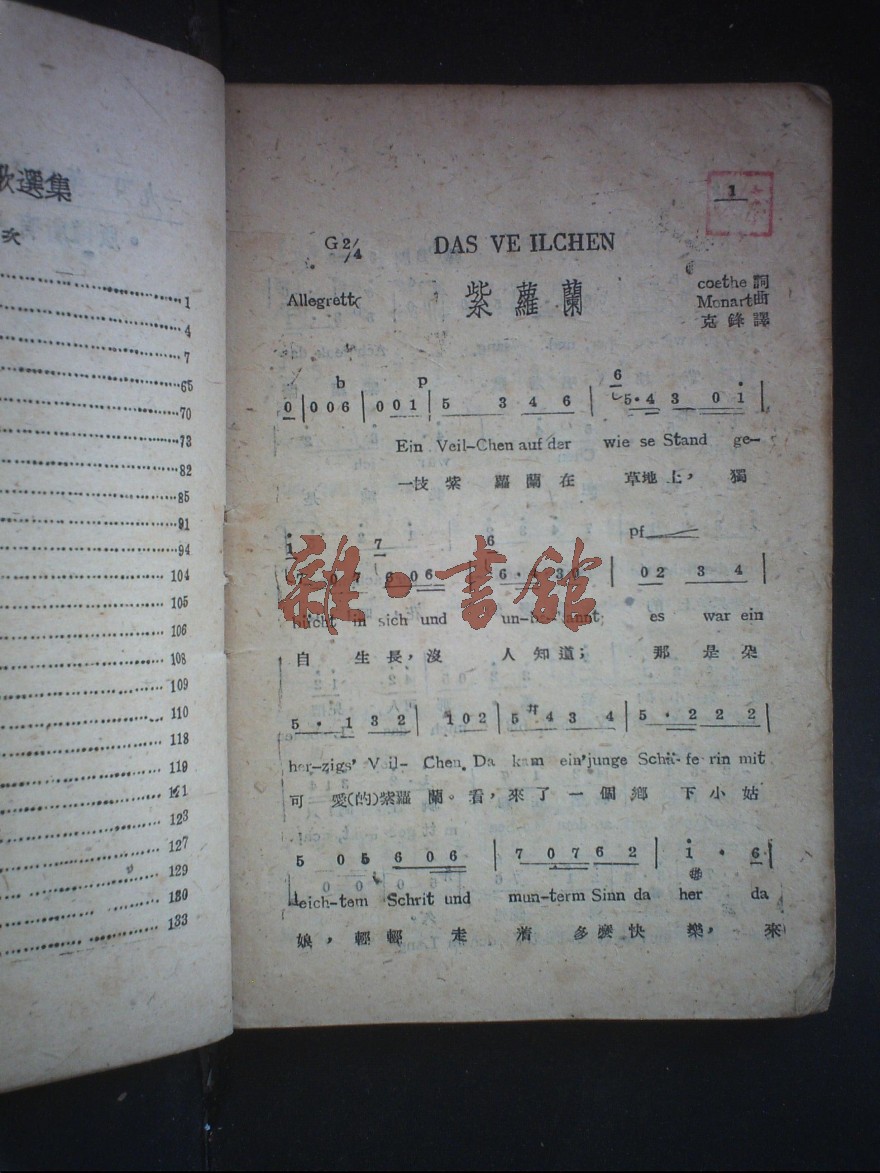 歌選集
次
1
4
7
65
70
73
82
85
91
94
104
105
106
108
109
110
118
119
121
123
127
129
130
133
1
G 2/4
DAS VE ILCHEN
Allegrett
紫蘿蘭
coethe 詞
Monart 曲
克鋒譯
b p 6
0 | 0 0 6 | 0 0 1 | 5 3 4 6 | 5·4 3 0 i |
Ein Veil-Chen auf der wie se Stand ge-
一技紫蘿蘭在草地上，獨
i 7 6 pf
7 0 7 6 0 6 | 6· 4 3 0 | 0 2 3 4 |
bückt in sich und un-be-kannt; es war ein
自生長，沒人知道；那是朵
雜·書館
5 · 1 3 2 | 1 0 2 | 5 #4 3 4 | 5 · 2 2 2 |
her-zigs' Veil-Chen. Da kam ein'junge Schä-fe rin mit
可愛(的)紫蘿蘭。看，來了一個鄉下小姑
5 0 5 6 0 6 | 7 0 7 6 2 | i · 6 |
Leich-tem Schrit und mun-term Sinn da her da
娘，輕輕走着多麼快樂，來